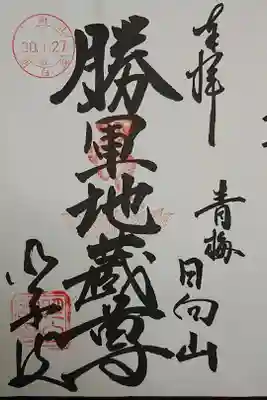 奉拝
青梅
日向山
勝軍地蔵尊
30.1.27